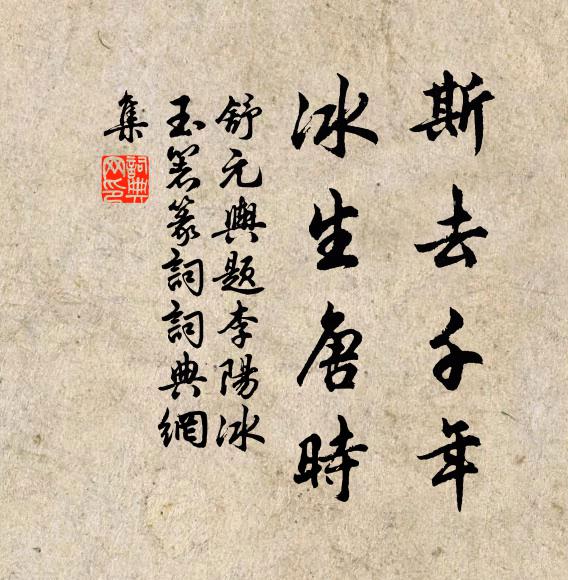 斯去千年
冰生唐時
舒元輿題李陽冰
玉箸篆詞詞典網
集
詞典网印